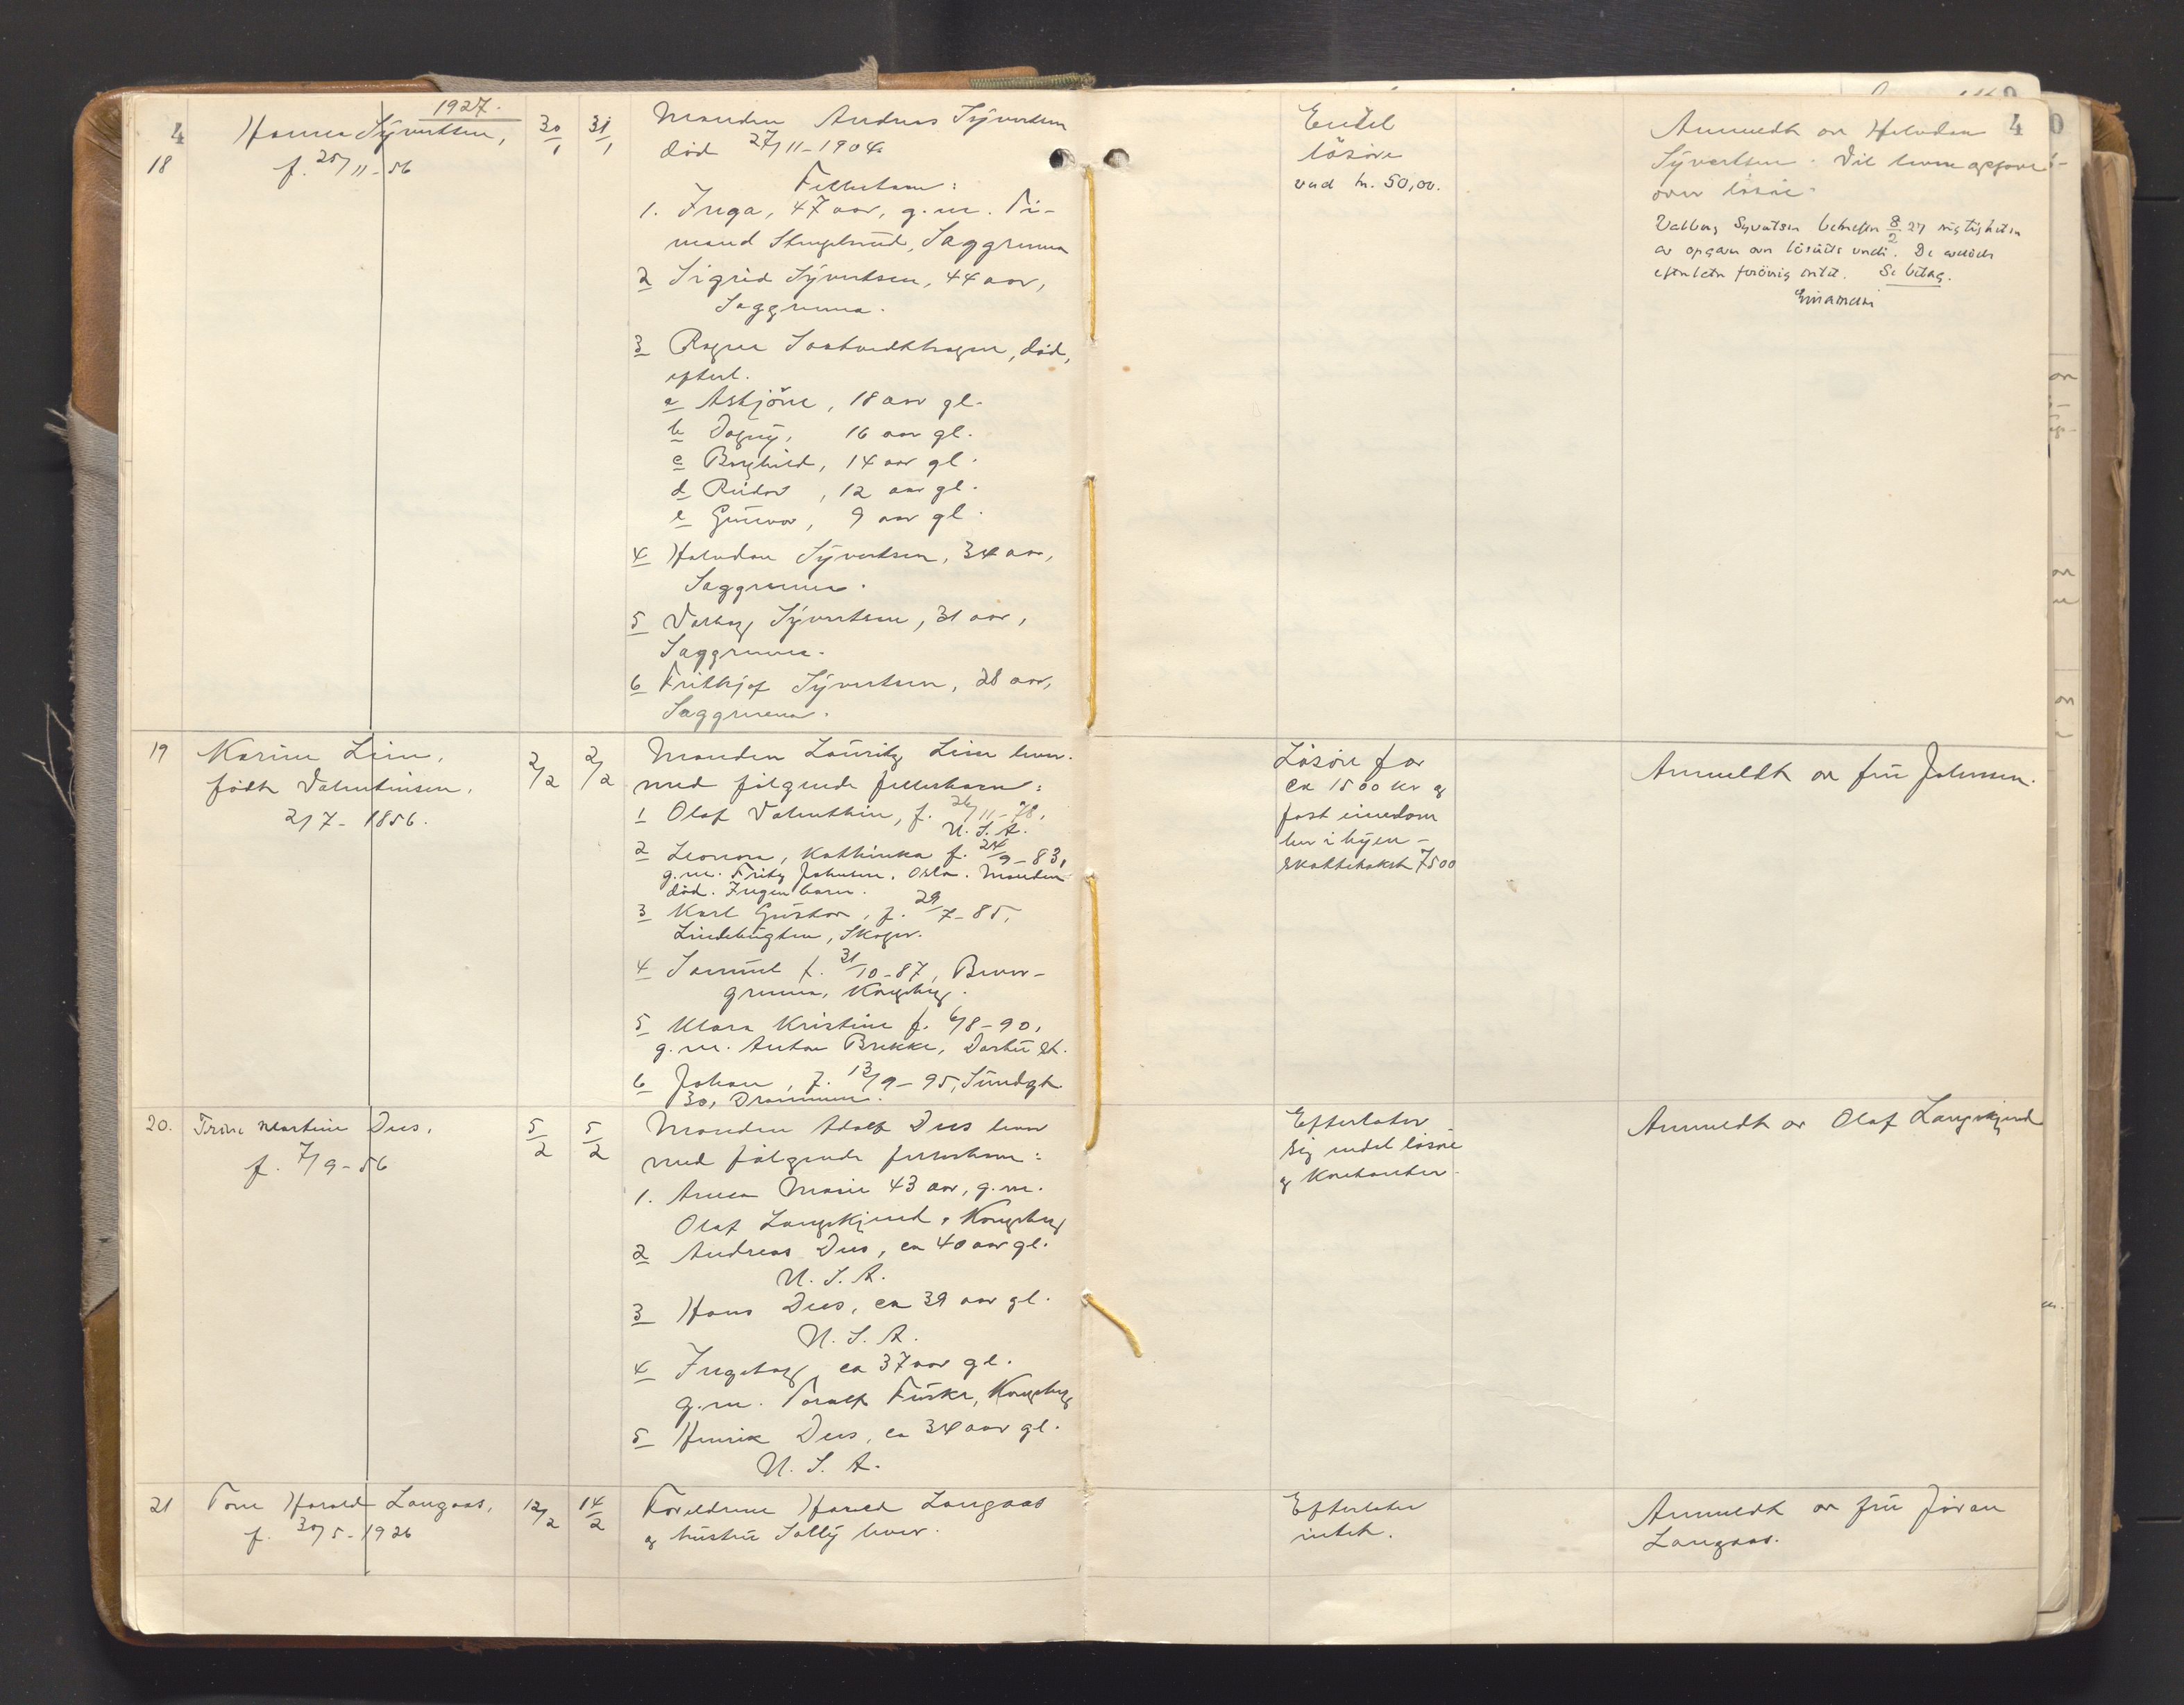 1927.
4
18
Hanna Syvertsen,
f. 25/11-56
30/1
31/1
Manden Andreas Syvertsen
död 27/11-1904.
Fellesbarn:
1. Inga, 47 aar, g.m.
mand Saggrenna
2 Sigrid Syvertsen, 44 aar,
Saggrenna.
3 Ragna død,
efterl.
a Asbjörn, 18 aar gl.
b Dagny, 16 aar gl.
c Borghild, 14 aar gl.
d Reidar, 12 aar gl.
e Gunvor, 9 aar gl.
4 Halvdan Syvertsen, 34 aar,
Saggrenna.
5 Valborg Syvertsen, 31 aar,
Saggrenna.
6 Frithjof Syvertsen, 28 aar,
Saggrenna.
Endel
lösöre
verd kr. 50,00.
4
Anmeldt av Halvdan
Syvertsen. Vil levere opgave
over lösöre.
Valborg Syvertsen bekrefter 8/2 27 rigtigheten
av opgave over lösörets verdi. De avdöde
efterlater forövrig intet. Se bilag.
19
Karine Lien,
födt Valentinsen.
2/7-1856.
2/2
2/2
Manden Lauritz Lien lever.
med fölgende fellesbarn:
1 Olaf Valenthin, f. 26/11-78,
U.S.A.
2 Leonora, Kathinka f. 24/9-83,
g.m. Fritz Johnsen, Oslo. Manden
död. Ingen barn.
3 Karl Gustav, f. 29/7-85,
Skoger.
4 Samuel f. 31/10-87, Bever-
grenna, Kongsberg.
5 Klara Kristine f. 6/8-90,
g.m. Anton Brekke,
6 Johan, f. 13/9-95, Sundgt.
30, Drammen.
Lösöre for
ca 1500 kr og
fast eiendom
her i byen -
skattetakst 7500
Anmeldt av fru Johnsen.
20.
Trine Martine Dees,
f. 7/9-56
5/2
5/2
Manden Adolf Dees lever
med fölgende fellesbarn:
1. Anna Marie 43 aar, g.m.
Olaf Langkjend, Kongsberg
2 Andreas Dees, ca 40 aar gl.
U.S.A.
3 Hans Dees, ca 39 aar gl.
U.S.A.
4 Ingeborg, ca 37 aar gl.
g.m. Toralf Kongsberg
5 Henrik Dees, ca 34 aar gl.
U.S.A.
Efterlater
sig endel lösöre
og kontanter.
Anmeldt av Olaf Langkjend
21
Tore Harald Langaas,
f. 30/5-1926
12/2
14/2
Foreldrene Harald Langaas
og hustru Solly lever.
Efterlater
intet.
Anmeldt av fru Jöran
Langaas.